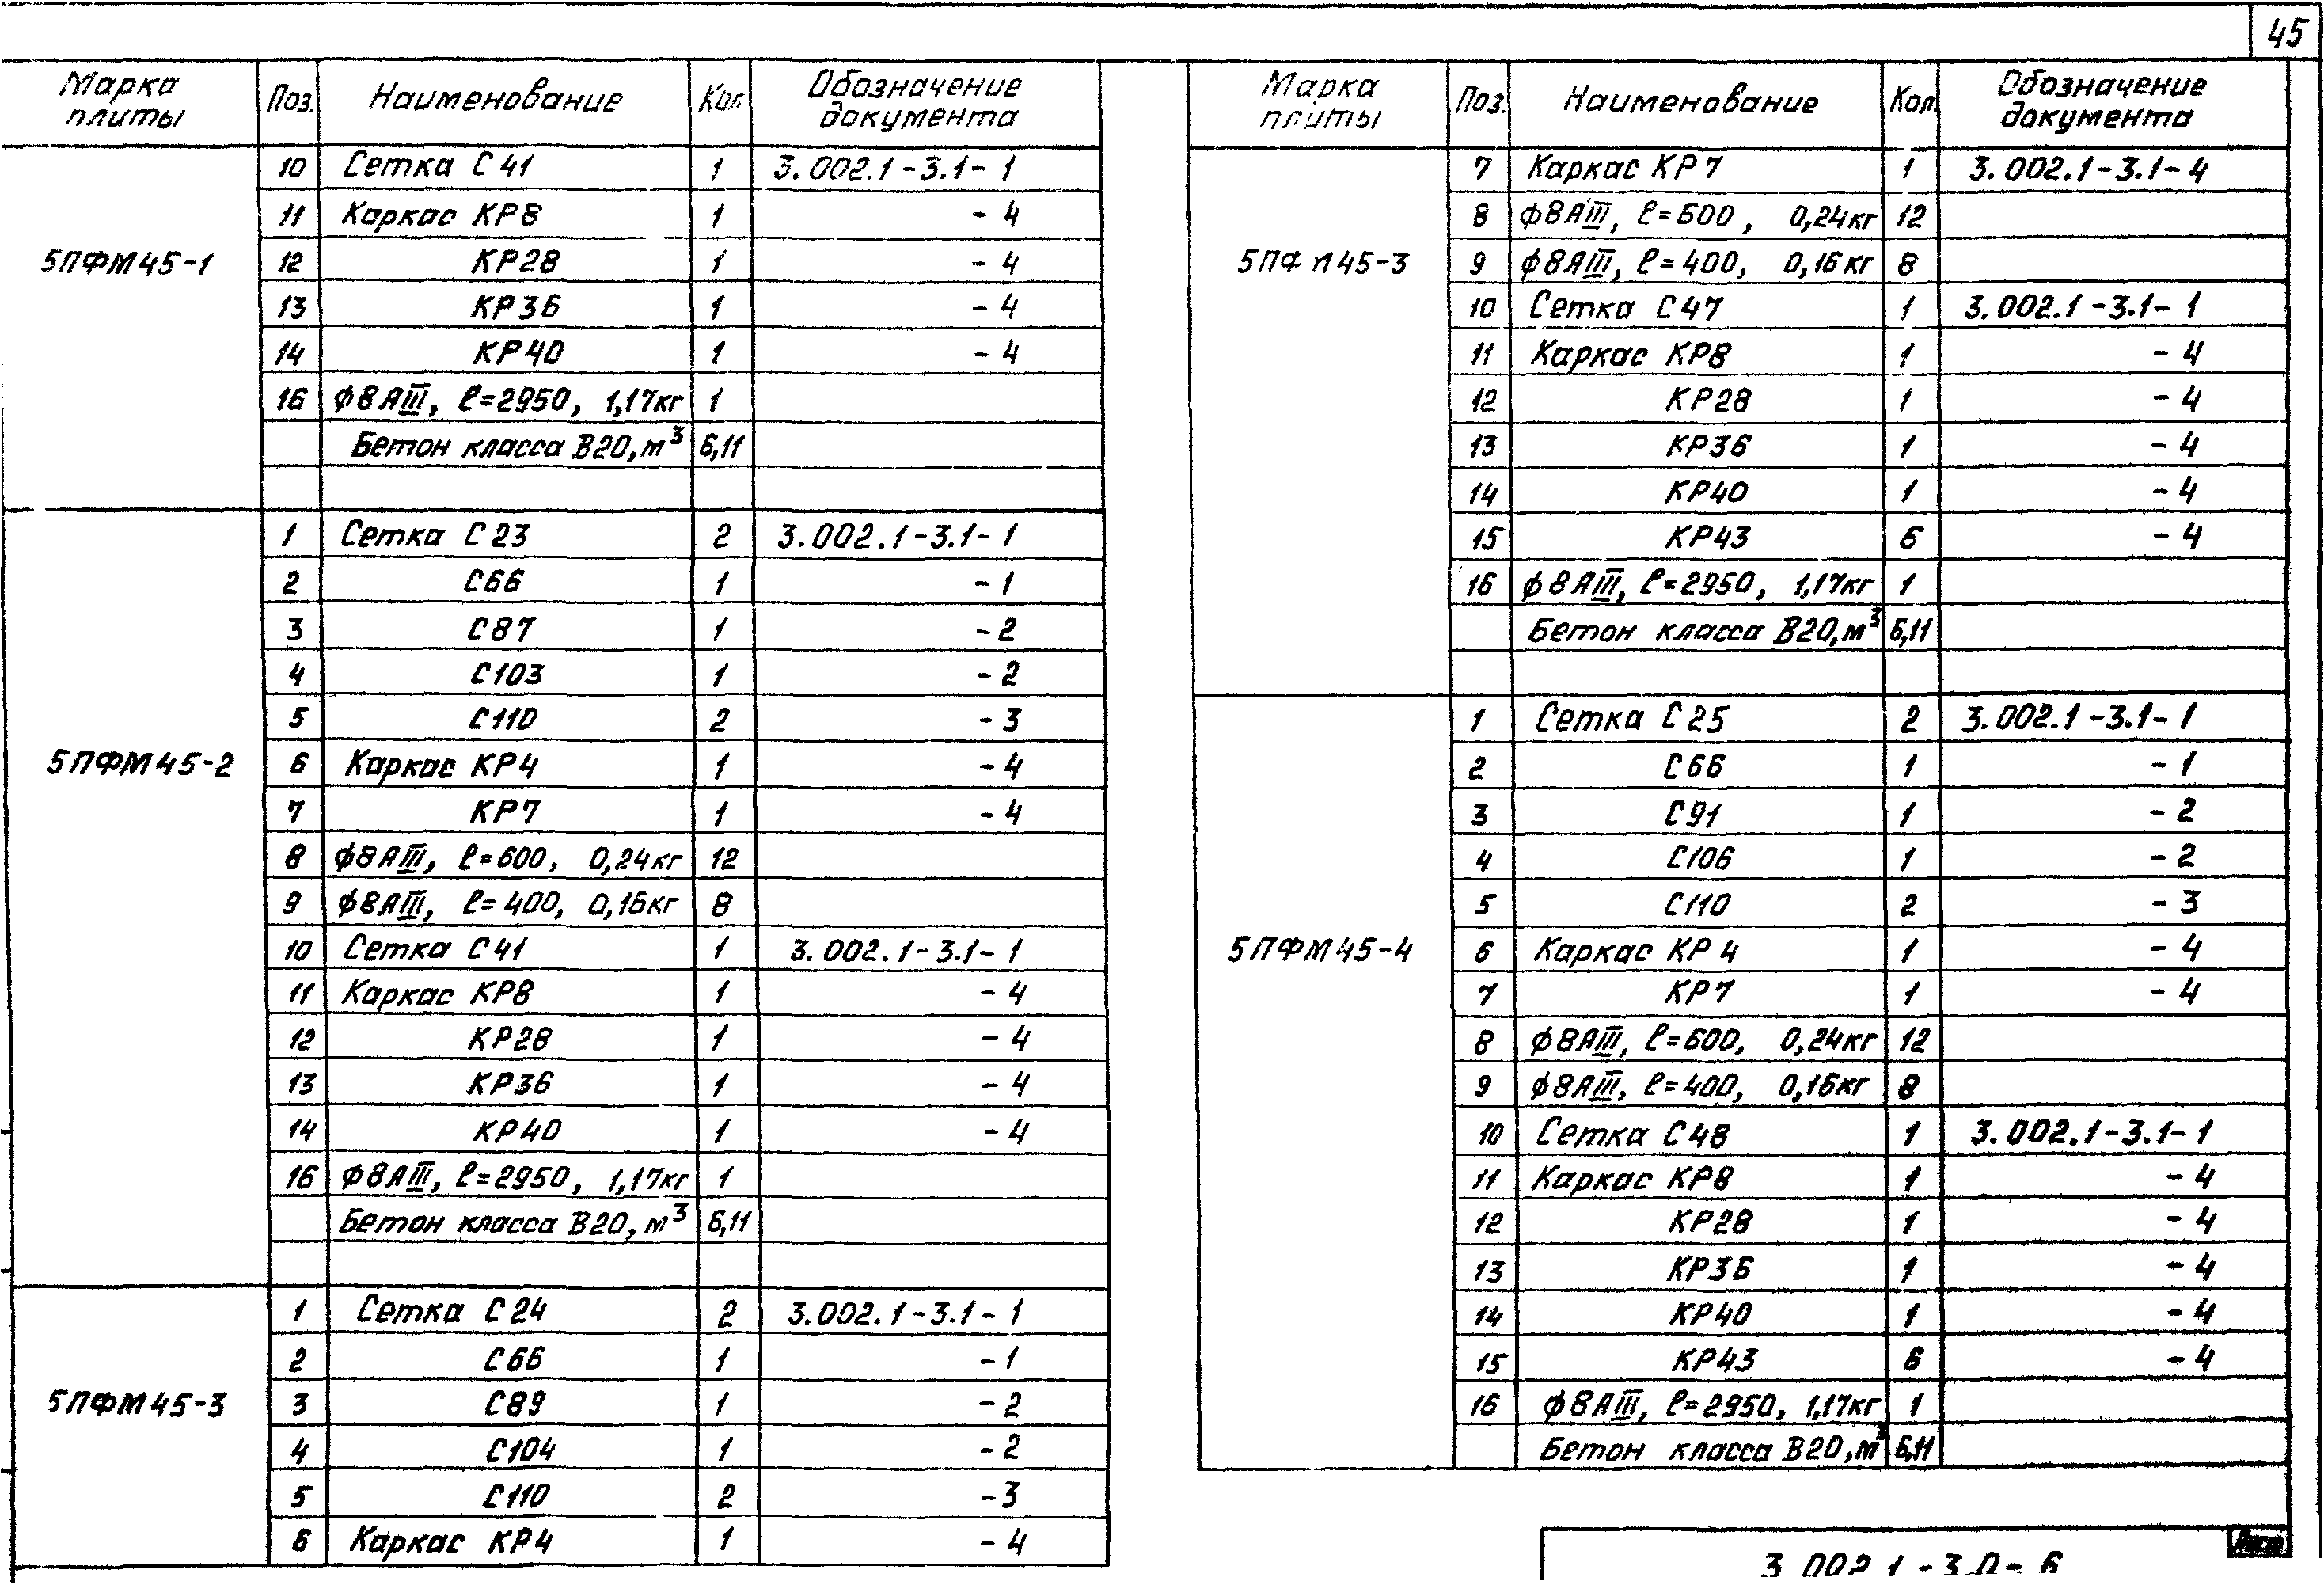 45
Марка плиты | Поз. | Наименование | Кол | Обозначение документа
5ПФМ45-1
10 | Сетка С41 | 1 | 3.002.1-3.1-1
11 | Каркас КР8 | 1 | -4
12 | КР28 | 1 | -4
13 | КР36 | 1 | -4
14 | КР40 | 1 | -4
16 | ф8АIII, ℓ=2950, 1,17кг | 1
Бетон класса В20, м³ | 6,11
5ПФМ45-2
1 | Сетка С23 | 2 | 3.002.1-3.1-1
2 | С66 | 1 | -1
3 | С87 | 1 | -2
4 | С103 | 1 | -2
5 | С110 | 2 | -3
6 | Каркас КР4 | 1 | -4
7 | КР7 | 1 | -4
8 | ф8АIII, ℓ=600, 0,24кг | 12
9 | ф8АIII, ℓ=400, 0,16кг | 8
10 | Сетка С41 | 1 | 3.002.1-3.1-1
11 | Каркас КР8 | 1 | -4
12 | КР28 | 1 | -4
13 | КР36 | 1 | -4
14 | КР40 | 1 | -4
16 | ф8АIII, ℓ=2950, 1,17кг | 1
Бетон класса В20, м³ | 6,11
5ПФМ45-3
1 | Сетка С24 | 2 | 3.002.1-3.1-1
2 | С66 | 1 | -1
3 | С89 | 1 | -2
4 | С104 | 1 | -2
5 | С110 | 2 | -3
6 | Каркас КР4 | 1 | -4
Марка плиты | Поз. | Наименование | Кол. | Обозначение документа
5ПФМ45-3
7 | Каркас КР7 | 1 | 3.002.1-3.1-4
8 | ф8АIII, ℓ=600, 0,24кг | 12
9 | ф8АIII, ℓ=400, 0,16кг | 8
10 | Сетка С47 | 1 | 3.002.1-3.1-1
11 | Каркас КР8 | 1 | -4
12 | КР28 | 1 | -4
13 | КР36 | 1 | -4
14 | КР40 | 1 | -4
15 | КР43 | 6 | -4
16 | ф8АIII, ℓ=2950, 1,17кг | 1
Бетон класса В20, м³ | 6,11
5ПФМ45-4
1 | Сетка С25 | 2 | 3.002.1-3.1-1
2 | С66 | 1 | -1
3 | С91 | 1 | -2
4 | С106 | 1 | -2
5 | С110 | 2 | -3
6 | Каркас КР4 | 1 | -4
7 | КР7 | 1 | -4
8 | ф8АIII, ℓ=600, 0,24кг | 12
9 | ф8АIII, ℓ=400, 0,16кг | 8
10 | Сетка С48 | 1 | 3.002.1-3.1-1
11 | Каркас КР8 | 1 | -4
12 | КР28 | 1 | -4
13 | КР36 | 1 | -4
14 | КР40 | 1 | -4
15 | КР43 | 6 | -4
16 | ф8АIII, ℓ=2950, 1,17кг | 1
Бетон класса В20, м³ | 6,11
Лист
3.002.1-3.0-6